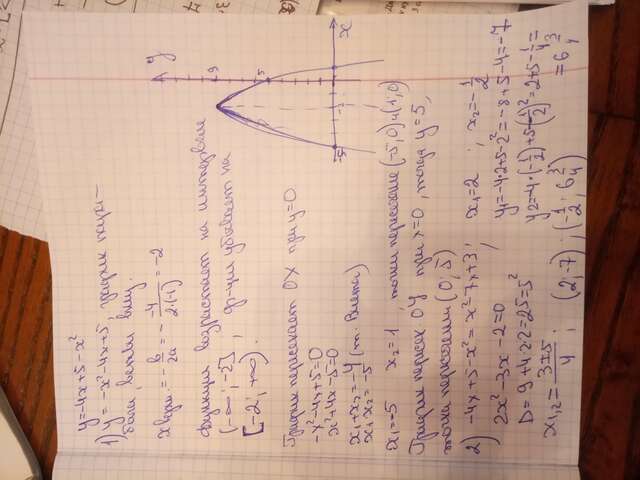 y=-4x+5-x²
1) y = -x²-4x+5, график пара-
бола, ветви вниз.
x верш. = -b/2a = - -4/2·(-1) = -2
Функция возрастает на интервале
(-∞; -2], ф-ция убывает на
[-2; +∞).
График пересекает OX при y=0
-x²-4x+5=0
x²+4x-5=0
x₁+x₂=-4 (т. Виета)
x₁·x₂=-5
x₁=-5 x₂=1, точки пересечение (-5;0) и (1;0)
График пересек. OY при x=0, тогда y=5,
точка пересечения (0; 5)
2) -4x+5-x²=x²-7x+3;
2x²-3x-2=0
D=9+4·2·2=25=5²
x₁,₂=3±5/4;
x₁=2 ; x₂=-1/2
y₁=-4·2+5-2²=-8+5-4=-7
y₂=-4·(-1/2)+5-(-1/2)²=2+5-1/4=
=6 3/4
(2;-7) ; (-1/2; 6 3/4)
y
9
5
-5
-2
x